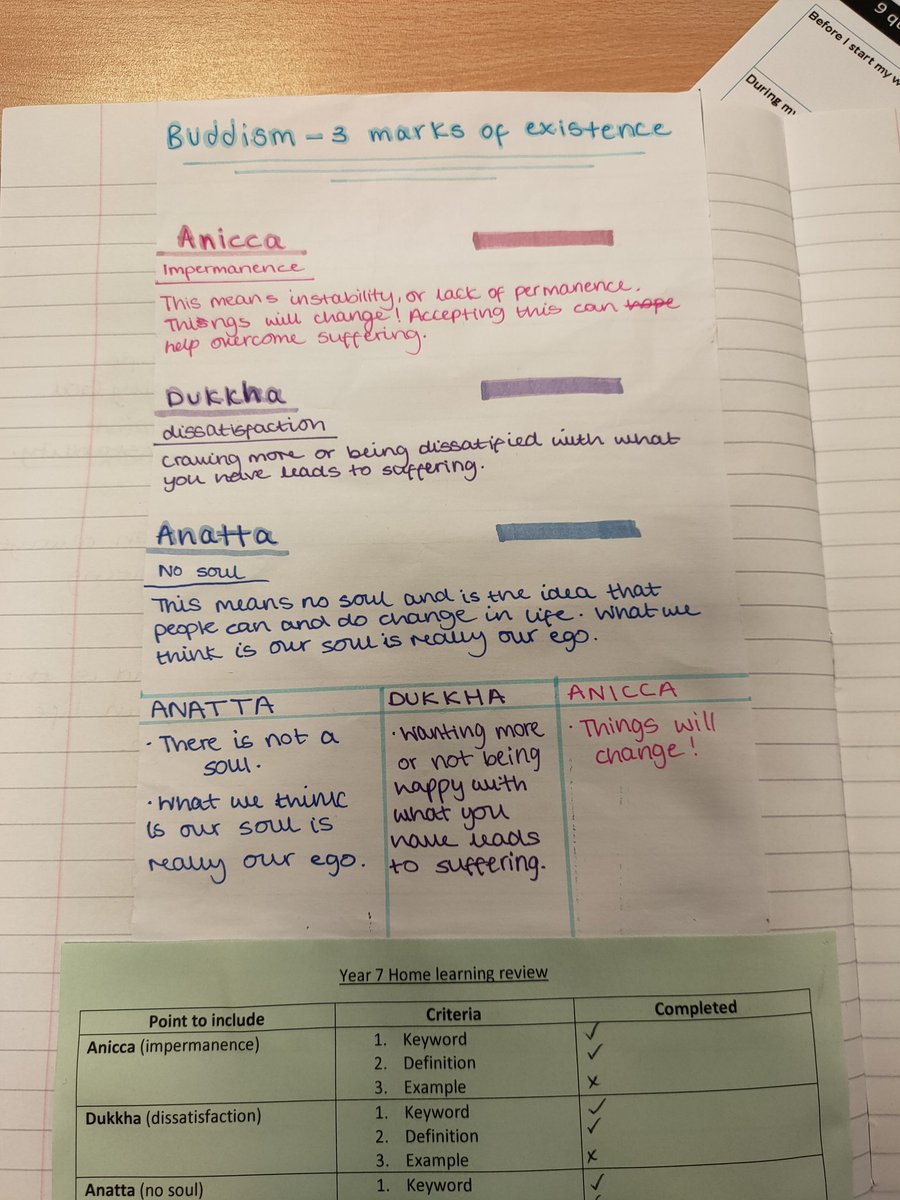 9 qu
Before I start my w
During my
Buddism - 3 marks of existence
Anicca
Impermanence
This means instability, or lack of permanence.
Things will change! Accepting this can hope
help overcome suffering.
Dukkha
dissatisfaction
craving more or being dissatified with what
you have leads to suffering.
Anatta
No soul
This means no soul and is the idea that
people can and do change in life. What we
think is our soul is really our ego.
ANATTA
· There is not a
soul.
· What we think
is our soul is
really our ego.
DUKKHA
· Wanting more
or not being
happy with
what you
have leads
to suffering.
ANICCA
· Things will
change!
Year 7 Home learning review
Point to include Criteria Completed
Anicca (impermanence) 1. Keyword ✓
2. Definition ✓
3. Example x
Dukkha (dissatisfaction) 1. Keyword ✓
2. Definition ✓
3. Example x
Anatta (no soul) 1. Keyword ✓